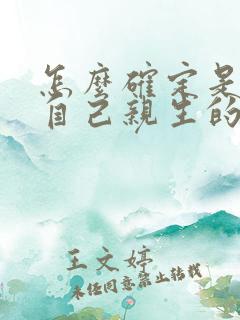 怎麼確定是
自己親生的
王文婷
未经同意禁止转载